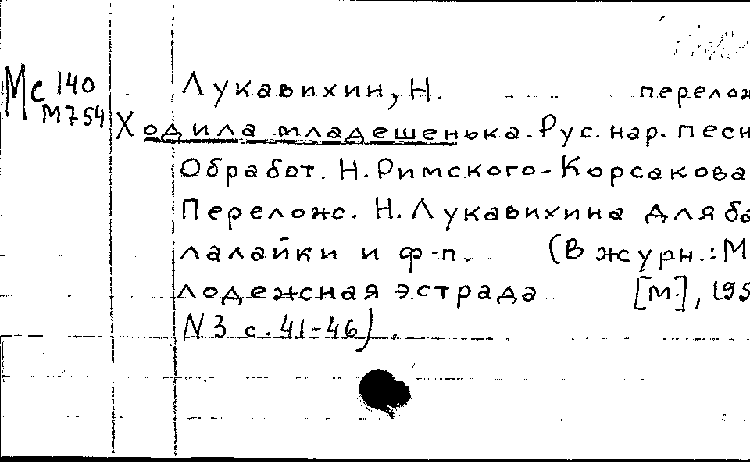 Мс 140
М754
Лукавихин, Н. перелож
Ходила младешенька. Рус. нар. песн
Обработ. Н. Римского-Корсакова
Перелож. Н. Лукавихина для ба
лалайки и ф-п. (В журн.: М
лодежная эстрада [М], 195
N3 с. 41-46).